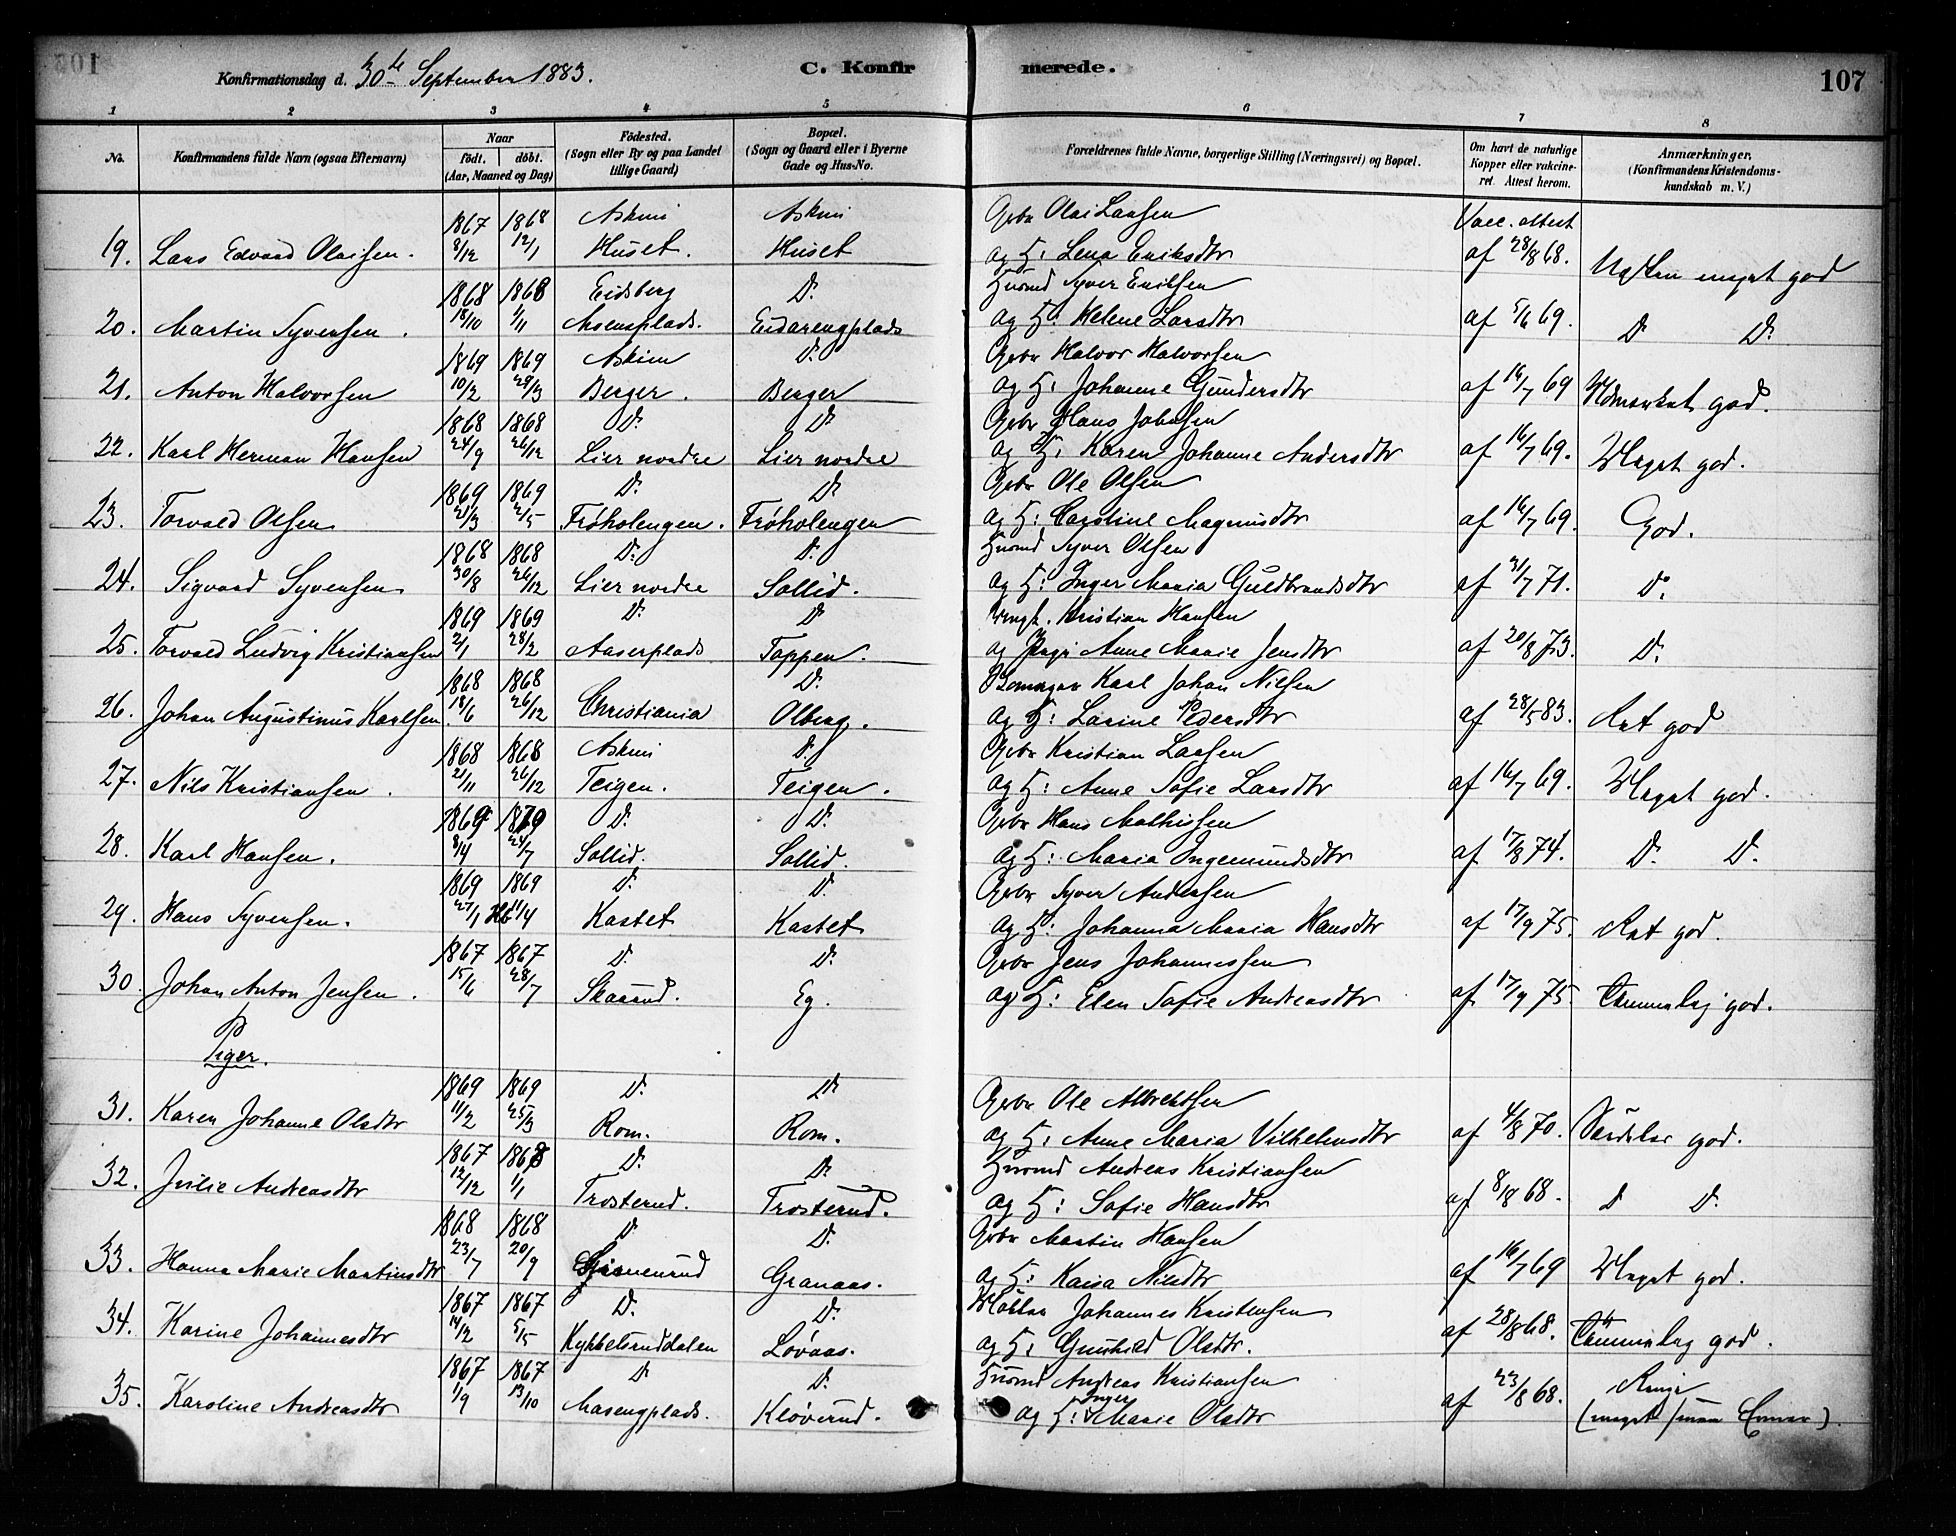 Konfirmationsdag d. 30te September 1883.
C. Konfirmerede.
107
1 2 3 4 5 6 7 8
No.
Konfirmandens fulde Navn (ogsaa Efternavn)
Naar
födt. döbt.
(Aar, Maaned og Dag)
Födested.
(Sogn eller By og paa Landet
tillige Gaard)
Bopæl.
(Sogn og Gaard eller i Byerne
Gade og Hus-No.
Forældrenes fulde Navne, borgerlige Stilling (Næringsvei) og Bopæl.
Om havt de naturlige
Kopper eller vakcine-
ret. Attest herom.
Anmærkninger.
(Konfirmandens Kristendoms-
kundskab m. V.)
1867 1868 Askim Askim Gbr Olai Larsen Vacc. attest
19. Lars Edvard Olaisen. 8/12 12/1 Huset. Huset og H: Lena Eriksdtr af 28/8 68. Næsten meget god
1868 1868 Eidsberg Do Husmd Syver Eriksen
20. Martin Syversen. 18/10 1/11 Moensplads. og H: Helene Larsdtr af 5/6 69. Do Do
1869 1869 Askim Do Gbr Halvor Halvorsen
21. Anton Halvorsen 10/2 29/3 Berger. Berger og H: Johanne Gundersdtr af 16/7 69 Udmærket god.
1868 1868 Do Do Gbr Hans Johnsen
22. Karl Herman Hansen 24/9 26/12 Lier nordre Lier nordre og H: Karen Johanne Andersdtr af 16/7 69. Meget god.
1869 1869 Do Do Gbr Ole Olsen
23. Torvald Olsen 21/3 2/5 Frøholengen. Frøholengen og H: Caroline Magnusdtr af 16/7 69. God.
1868 1868 Do Do Husmd Syver Olsen
24. Sigvard Syversen 30/8 26/12 Lier nordre Sollid. og H: Inger Maria Guldbrandsdtr af 31/7 71. Do
1869 1869 Do Do Kristian Hansen
25. Torvald Ludvig Kristiansen 2/1 28/2 Aaserplads Toppen. og Pige Anne Marie Jensdtr af 20/8 73. Do
1868 1868 Do Karl Johan Nilsen
26. Johan Augustinus Karlsen. 18/6 26/12 Christiania Olberg. og H: Larine Pedersdtr af 28/5 83. Ret god
1868 1868 Askim Do Gbr Kristian Larsen
27. Nils Kristiansen. 21/11 26/12 Teigen. Teigen. og H: Anne Sofie Larsdtr af 16/7 69. Meget god.
1869 1870 Do Do Gbr Hans Mathisen
28. Karl Hansen. 8/4 24/7 Sollid. Sollid. og H: Maria Ingemundsdtr af 17/8 74. Do Do
1869 1869 Do Do Gbr Syver Andersen
29. Hans Syversen. 27/1 11/4 Kastet Kastet og H: Johanna Maria Hansdtr af 17/9 75. Ret god.
1867 1867 Do Do Gbr Jens Johannessen
30. Johan Anton Jensen. 15/6 28/7 Skaarud. Eg. og H: Elen Sofie Andreasdtr af 17/9 75 Temmelig god.
Piger.
1869 1869 Do Do Gbr Ole Albrektsen
31. Karen Johanne Olsdtr 11/2 25/3 Rom. Rom. og H: Anne Maria Vilhelmsdtr af 4/8 70. Særdeles god.
1867 1868 Do Do Husmd Andreas Kristiansen
32. Julie Andreasdtr 12/12 1/1 Trosterud. Trosterud. og H: Sofie Hansdtr af 8/8 68. Do Do
1868 1868 Do Do Gbr Martin Hansen
33. Hanna Marie Martinsdtr 23/7 20/9 Granaas. og H: Kaisa Nilsdtr af 16/7 69 Meget god.
1867 1867 Do Do Møller Johannes Kristensen
34. Karine Johannesdtr 14/2 5/5 Kykkelsruddalen Løvaas. og H: Gunhild Olsdtr. af 28/8 68. Temmelig god.
1867 1867 Do Do Husmd Andreas Kristiansen
35. Karoline Andreasdtr 1/9 13/10 Masengplads. Kløverud. og H: Inger Marie Olsdtr af 23/8 68. Ringe
(meget